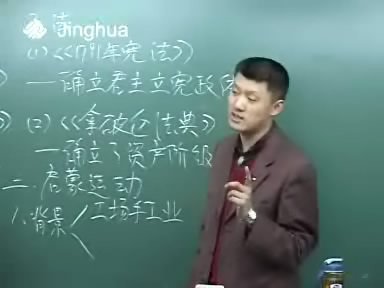 Jinghua
法
(1)《1791年宪法》
—确立君主立宪政体
(2)《拿破仑法典》
—确立了资产阶级
二.启蒙运动
1.背景
工场手工业